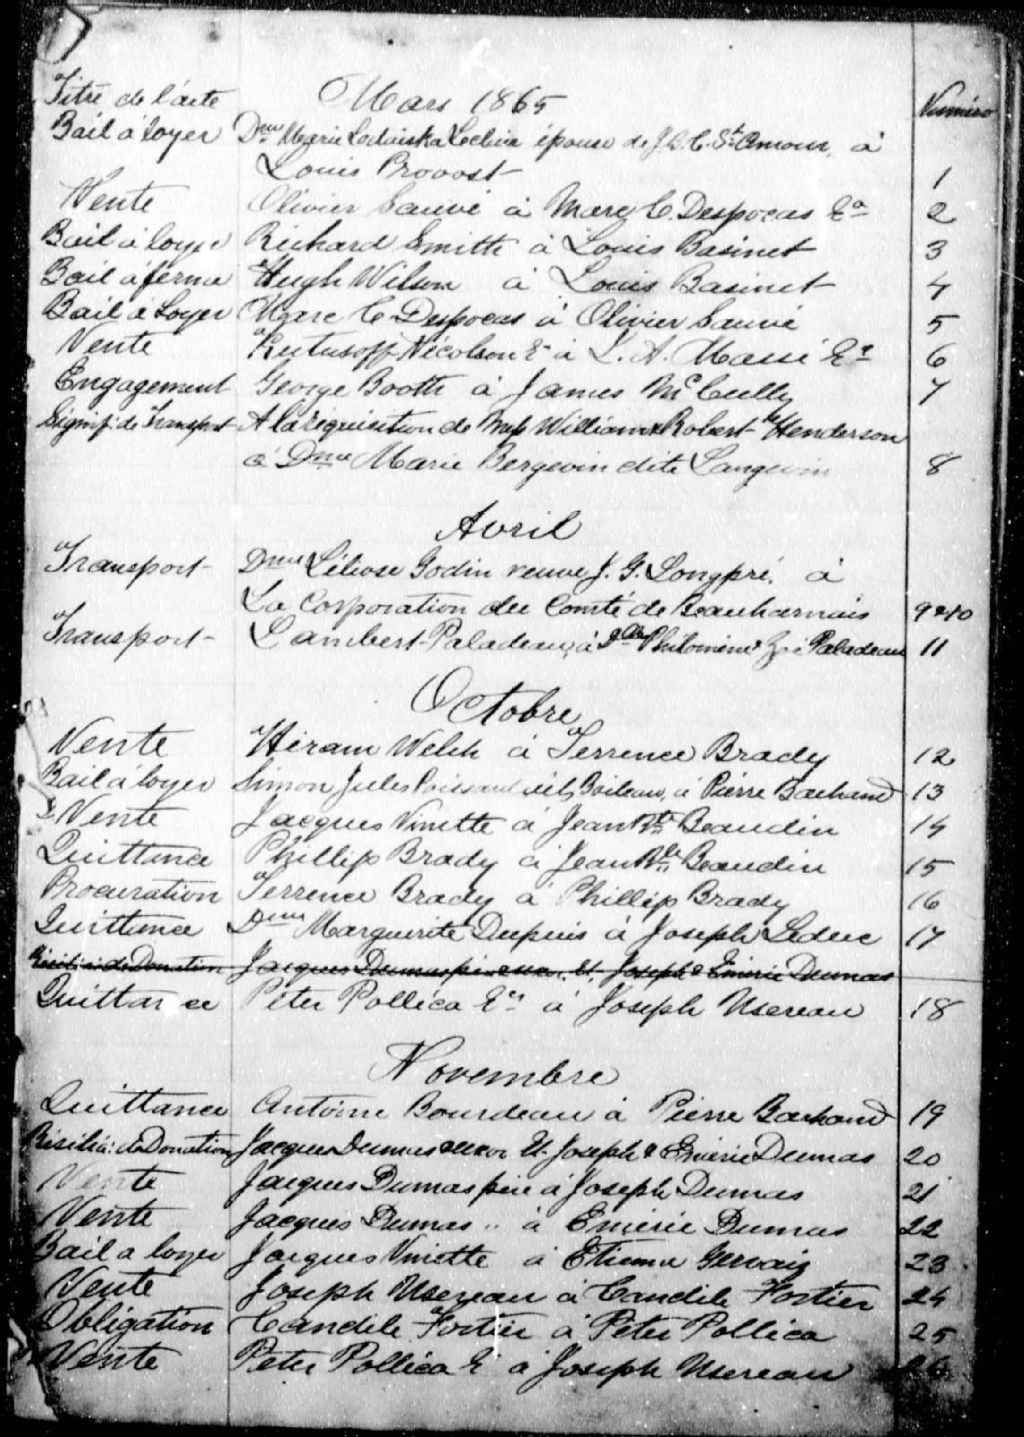 Titre de l'acte Mars 1865 Numéro
Bail à loyer Dme Marie Lodoiska Leclair épouse de J. B. C. St Amour, à
Louis Provost 1
Vente Olivier Sauvé à Marc C. Despocas Er 2
Bail à loyer Richard Smith à Louis Basinet 3
Bail à ferme Hugh Wilson à Louis Basinet 4
Bail à Loyer Marc C Despocas à Olivier Sauvé 5
Vente Nicolson Er à L. A. Massé Er 6
Engagement George Booth à James McCully 7
Signif: de Transport A la réquisition de William Robert Henderson
à Dme Marie Bergevin dite Langevin 8
Avril
Transport Dme Godin veuve J. G. Longpré, à
La Corporation du Comté de Beauharnais 9 & 10
Transport Lambert Paladeau, à Philomène Zoé Paladeau 11
Octobre
Vente Hiram Welch à Terrence Brady 12
Bail à loyer Simon Jules Boileau, à Pierre Barhand 13
Vente Jacques Vinette à Jean Bte Beaudin 14
Quittance Phillip Brady à Jean Bte Beaudin 15
Procuration Terrence Brady à Phillip Brady 16
Quittance Dme Marguerite Dupuis à Joseph Leduc 17
de Donation Jacques Dumas père et Joseph & Emérie Dumas
Quittance Peter Pollica Er à Joseph Usereau 18
Novembre
Quittance Antoine Bourdeau à Pierre Barhand 19
Résilia: de Donation Jacques Dumas et Joseph & Emérie Dumas 20
Vente Jacques Dumas père à Joseph Dumas 21
Vente Jacques Dumas " à Emérie Dumas 22
Bail a loyer Jacques Vinette à Etienne Gervais 23
Vente Joseph Usereau à Candile Fortier 24
Obligation Candile Fortier à Peter Pollica 25
Vente Peter Pollica Er à Joseph Usereau 26